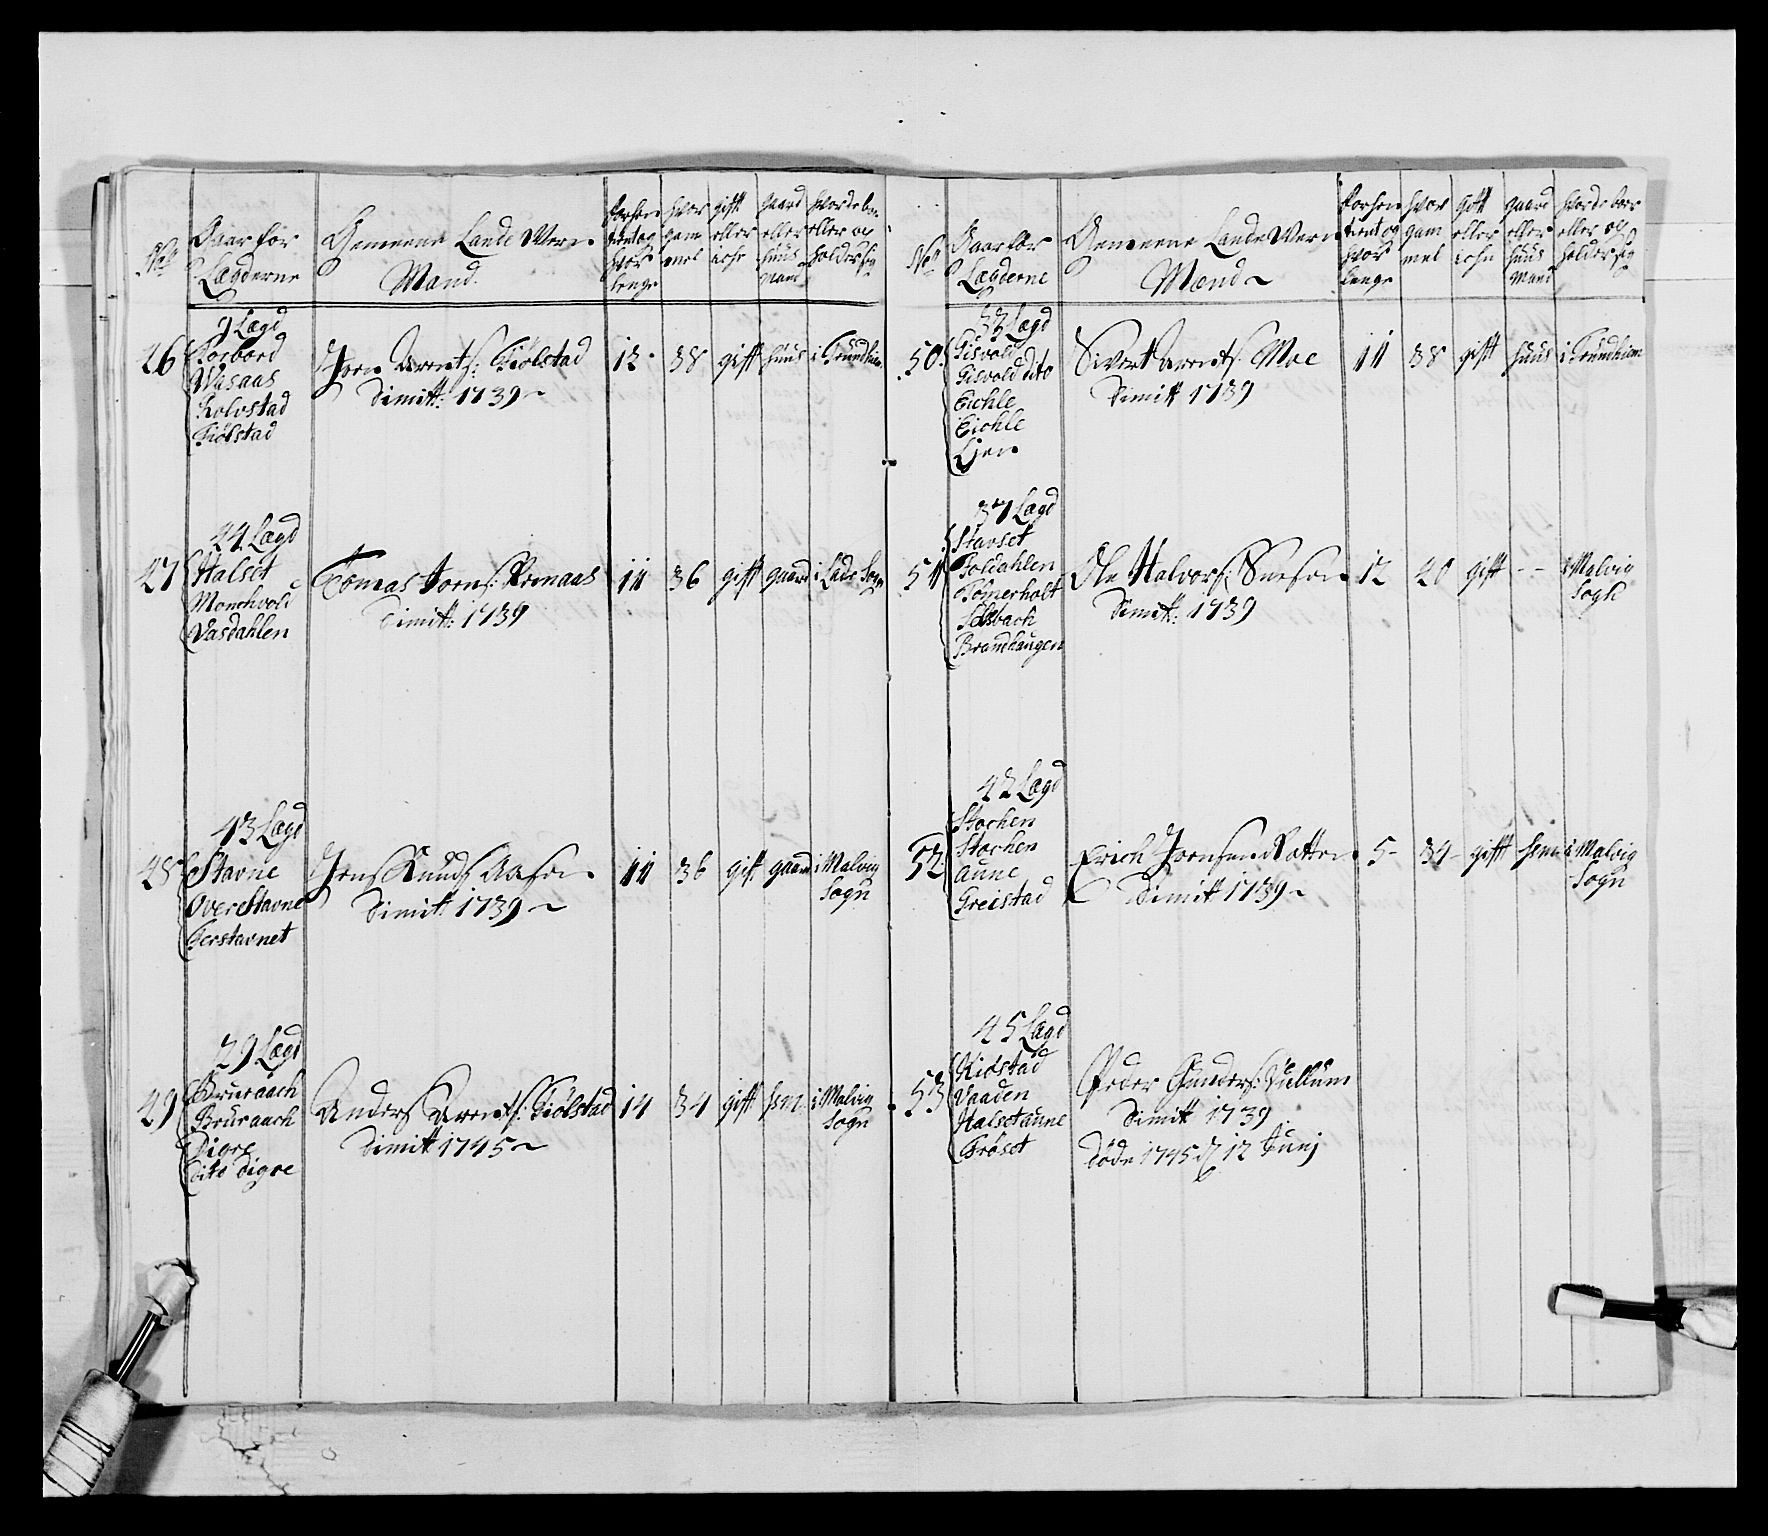 No
Gaar for
Lægderne
Gemeene Lande Wern
Mand.
forhen
tient og
hvor
lenge
hvor
gam
mel
gift
eller
iche
gaard
eller
huus
Mand
hvor de boer
eller op
holder sig
26
9 Lægd
Forbord
Wasaas
Kolvstad
Kiölstad
Joen Arents: Kiölstad
dimitt: 1739
12
38
gift
huus
i Trundhiem
27
24 Lægd
Halset
Monchvold
Vasdahlen
Tomas Joens:
dimitt: 1739
11
36
gift
gaard
i Lade Sogn
28
43 Lægd
Stavne
Overstavne
Ferstavnet
Jens Knuds
dimitt: 1739
11
36
gift
gaard
i Malvig
Sogn
29
29 Lægd
Bruraach
Bruraach
Digre
dito digre
Anders Arents: Kiölstad
dimitt 1745
14
34
gift
hsm.
i Malvig
Sogn
No
Gaar for
Lægderne
Gemeene Lande Wern
Mænd
forhen
tient og
hvor
lenge
hvor
gam
mel
gift
eller
iche
gaard
eller
huus
Mand
hvor de boer
eller op
holder sig
50
33 Lægd
Gisvold
Gisvold dito
Eichle
Eichle
Lien
Sivert Arents: Moe
dimitt 1739
11
38
gift
huus
i Trundhiem
51
37 Lægd
Stavset
Foldahlen
Tömerholt
Selsbach
Brandhaugen
Ole Halvors:
dimitt: 1739
12
20
gift
- -
i Malvig
Sogn
52
42 Lægd
Stochen
Stochen
Aune
Greistad
Erich Joensen Rotten
dimitt 1739
5
34
gift
i Malvig
Sogn
53
45 Lægd
Kidstad
Vaaden
Halsetaune
Fröset
Peder Gunders: Vullum
dimitt 1739
döde 1745 d 12 Junj